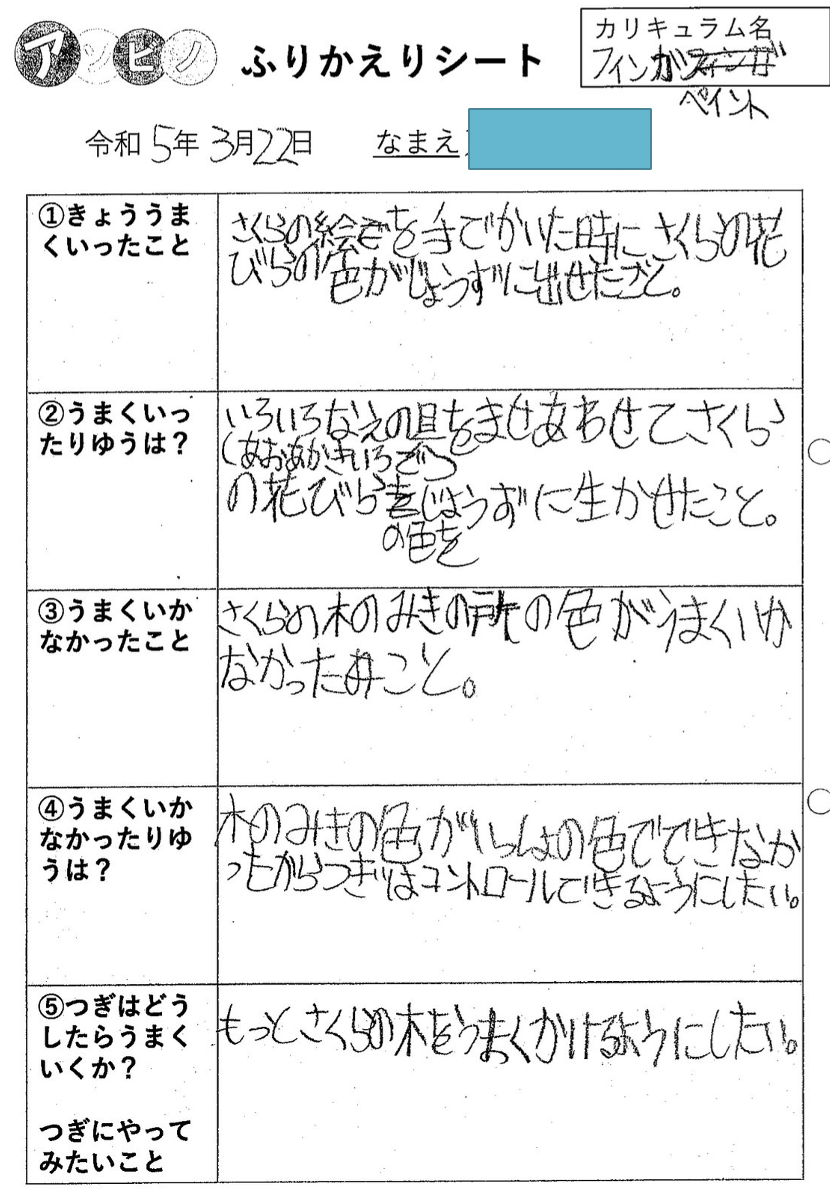 アソビノ
ふりかえりシート
カリキュラム名
フィンガ
ペイント
令和5年3月22日
なまえ
①きょううま
くいったこと
さくらの絵を手でかいた時にさくらの花
びらの色がじょうずに出せたこと。
②うまくいっ
たりゆうは？
いろいろなえの具をませあわせてさくら
(あおあかきいろ
の花びらじょうずに生かせたこと。
の色を
③うまくいか
なかったこと
さくらの木のみきの所の色がうまくいか
なかったこと。
④うまくいか
なかったりゆ
うは？
木のみきの色がいっしょの色でできなか
ったからつぎはコントロールできるようにしたい。
⑤つぎはどう
したらうまく
いくか？
もっとさくらの木をうまくかけるようにしたい。
つぎにやって
みたいこと